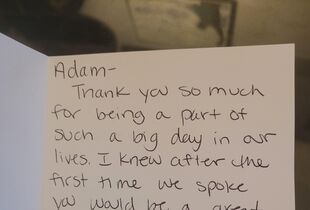 Adam-
Thank you so much
for being a part of
such a big day in our
lives. I knew after the
first time we spoke
you would be a great